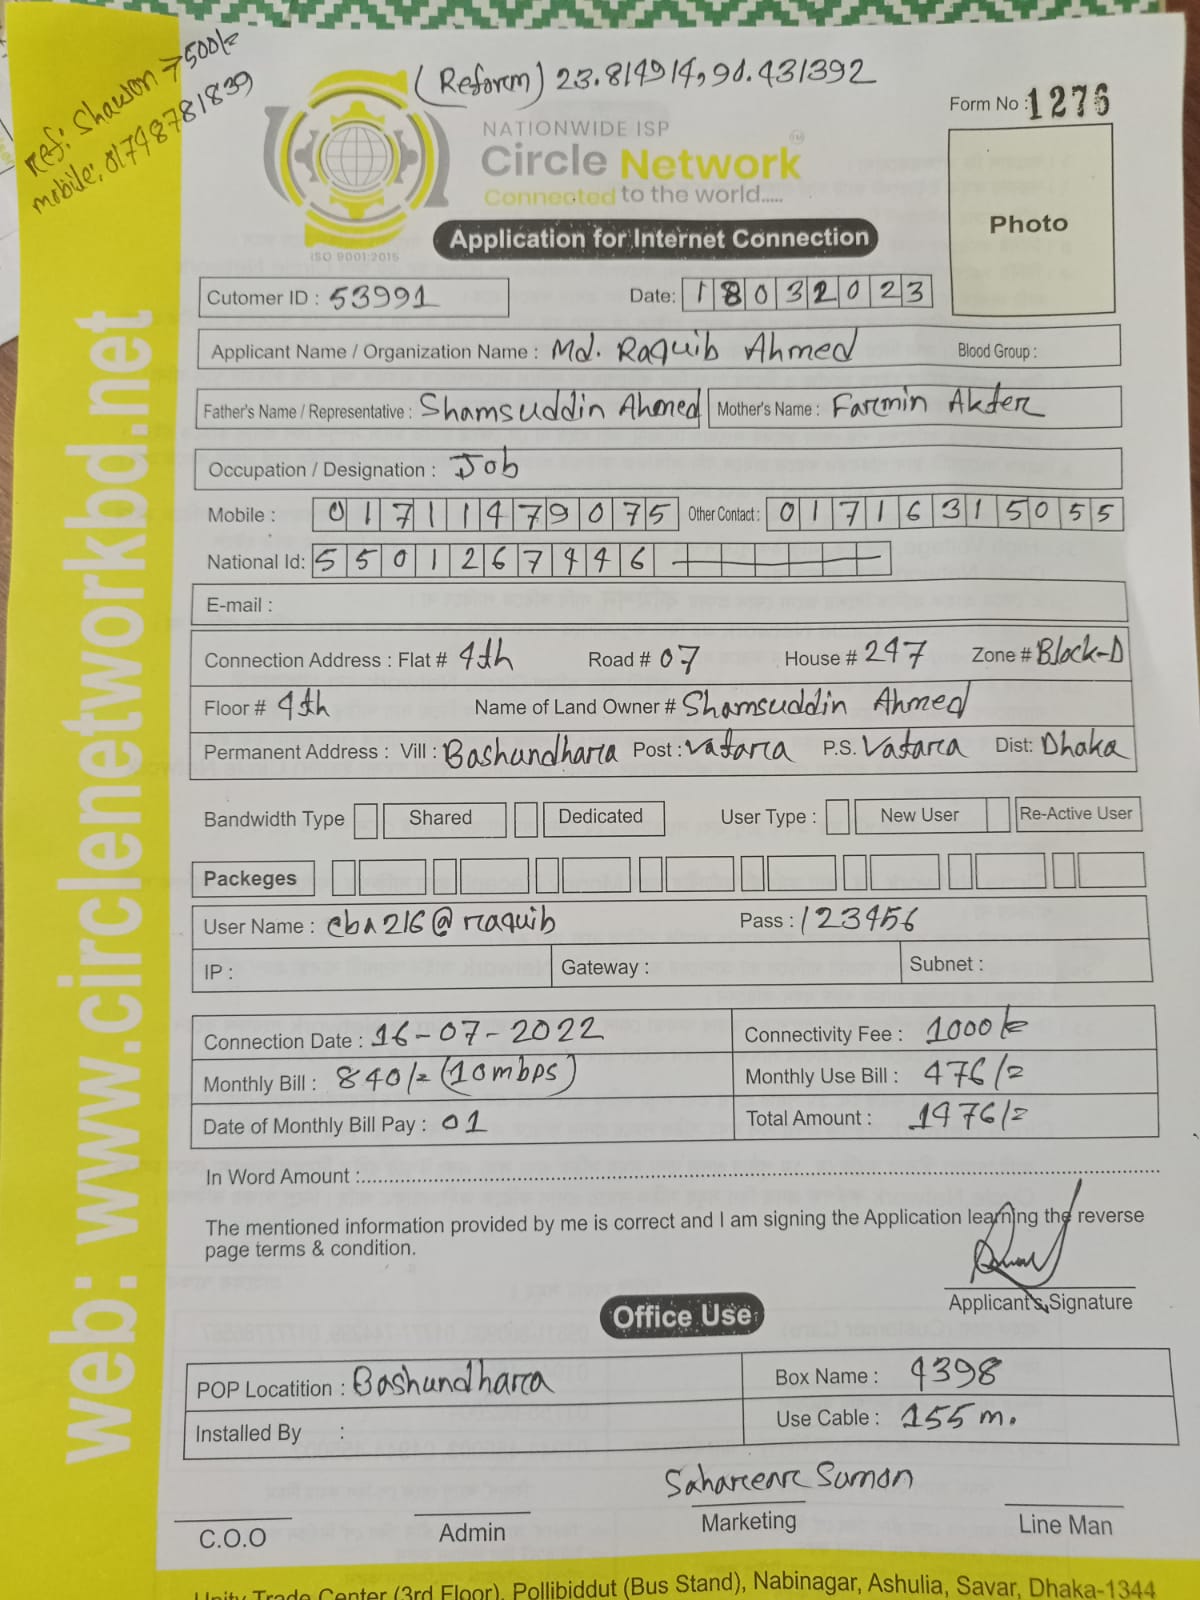 Ref: Shawon 7500/=
mobile: 01748781839
(Reform) 23.814914, 90.431392
Form No : 1276
NATIONWIDE ISP
Circle Network
Connected to the world.....
ISO 9001:2015
Photo
Application for Internet Connection
Cutomer ID : 53991
Date: 18032023
Applicant Name / Organization Name : Md. Raquib Ahmed Blood Group :
Father's Name / Representative : Shamsuddin Ahmed Mother's Name : Farmin Akter
Occupation / Designation : Job
Mobile : 01711479075 Other Contact : 01716315055
National Id: 5501267446
E-mail :
Connection Address : Flat # 4th Road # 07 House # 247 Zone # Block-D
Floor # 4th Name of Land Owner # Shamsuddin Ahmed
Permanent Address : Vill : Bashundhara Post : Vatara P.S. Vatara Dist: Dhaka
Bandwidth Type Shared Dedicated User Type : New User Re-Active User
Packeges
User Name : cbn216@raquib Pass : 123456
IP : Gateway : Subnet :
Connection Date : 16-07-2022 Connectivity Fee : 1000/=
Monthly Bill : 840/= (10mbps) Monthly Use Bill : 476/=
Date of Monthly Bill Pay : 01 Total Amount : 1476/=
In Word Amount :
The mentioned information provided by me is correct and I am signing the Application learning the reverse
page terms & condition.
Applicant's Signature
Office Use
POP Locatition : Bashundhara Box Name : 4398
Installed By : Use Cable : 155 m.
Sahareare Sumon
C.O.O Admin Marketing Line Man
Unity Trade Center (3rd Floor), Pollibiddut (Bus Stand), Nabinagar, Ashulia, Savar, Dhaka-1344
web: www.circlenetworkbd.net